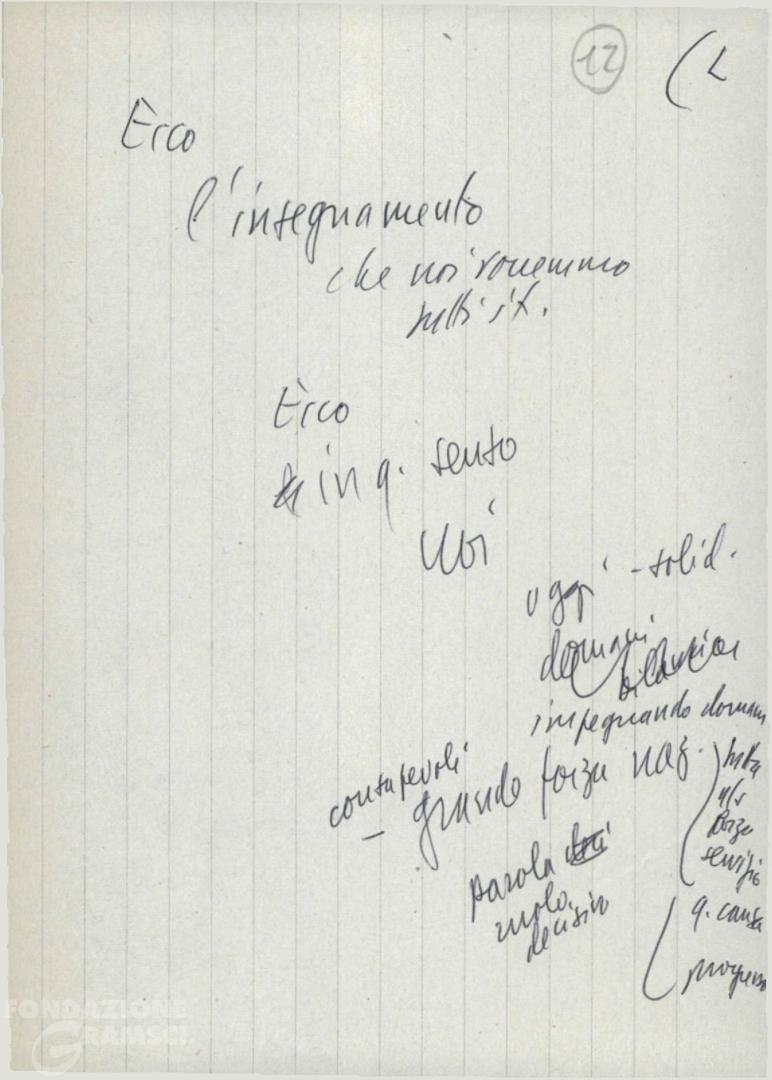 12
Ecco
l'insegnamento
che noi vorremmo
tutti it.
Ecco
in q. senso
Noi
oggi - solid.
domani
impegnando domani
consapevoli
- grande forza naz.
tutta
ns
forza
servizio
parola
ruolo
decisivo
q. causa
progresso
FONDAZIONE
GRAMSCI